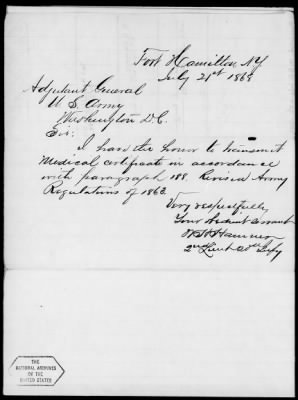 Fort Hamilton, NY
July 21st 1868
Adjutant General
U S Army
Washington D.C.
Sir:
I have the honor to transmit
Medical certificate in accordance
with paragraph 188 Revised Army
Regulations of 1863.
Very respectfully
Your obedient servant
2nd Lieut 20th Infy
THE
NATIONAL ARCHIVES
OF THE
UNITED STATES